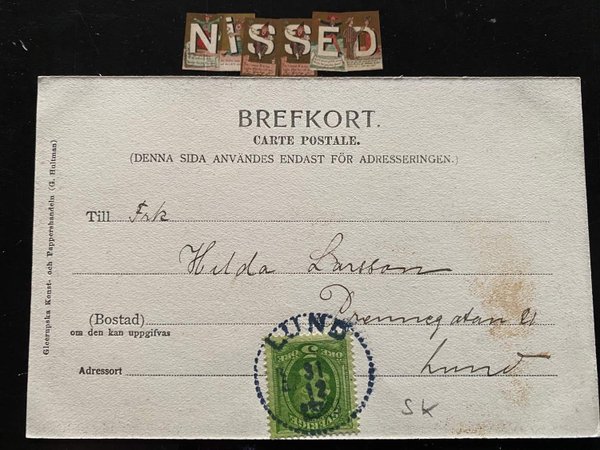 NiSSED
BREFKORT.
CARTE POSTALE.
(DENNA SIDA ANVÄNDES ENDAST FÖR ADRESSERINGEN.)
Gleerupska Konst- och Pappershandeln (G. Hultman)
Till Frk
Hilda Larsson
21
(Bostad)
om den kan uppgifvas
Lund
Adressort
LUND
31
12
5
SVERIGE
SK